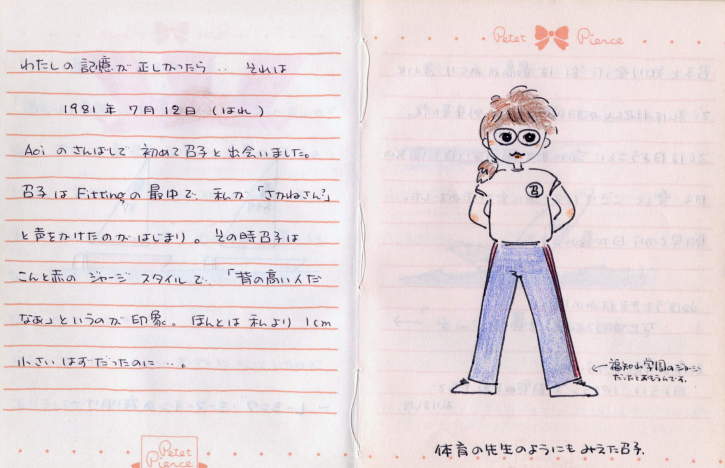 わたしの 記憶が 正しかったら‥ それは
1981年 7月12日 (はれ)
Aoi のさんばしで 初めて召子と出会いました。
召子は Fittingの最中で 私が「さかねさん?」
と声をかけたのがはじまり。その時召子は
こんと赤の ジャージ スタイルで、「背の高い人だ
なぁ」というのが 印象。ほんとは 私より 1cm
小さいはずだったのに…。
Petet Pierce
Petet Pierce
召
←福知山学園のジャージ
だったとおもうんです。
体育の先生のようにも みえた召子.